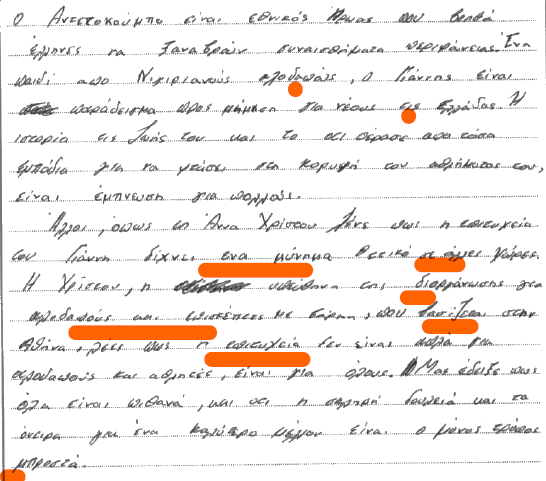 Ο Αντετοκούμπο είναι εθνικός ήρωας που βοηθά
έλληνες να ξαναβρούν συναισθήματα περηφάνειας. Ένα
παιδί απο Νιγιριανούς αλοδαπούς, ο Γιάννης είναι
παράδειγμα προς μίμηση για νέους εις Ελλάδας. Η
ιστορία εις ζωής του και το οτι πέρασε απο τόσα
εμπόδια για να φτάσει στη κορυφή του αθλήματος του,
είναι έμπνευση για πολλούς.
Άλλοι, όπως η Άννα Χρίστου λένε πως η επιτυχεία
του Γιάννη δίχνει ενα μύνημα θετικό σε άλλες χώρες.
Η Χρίστου, η υπεύθηνη της διοργάνωσης για
αλοδαπούς και επισκέπτες με , που βασίζεται στην
Αθήνα, λέει πως η επιτυχεία δεν είναι απλά για
αλλοδαπούς και αθλητές, είναι για όλους. Μας έδειξε πως
όλα είναι πιθανά, και οτι η σκληρή δουλειά και τα
όνειρα για ένα καλύτερο μέλλον είναι ο μόνος τρόπος
μπροστά.